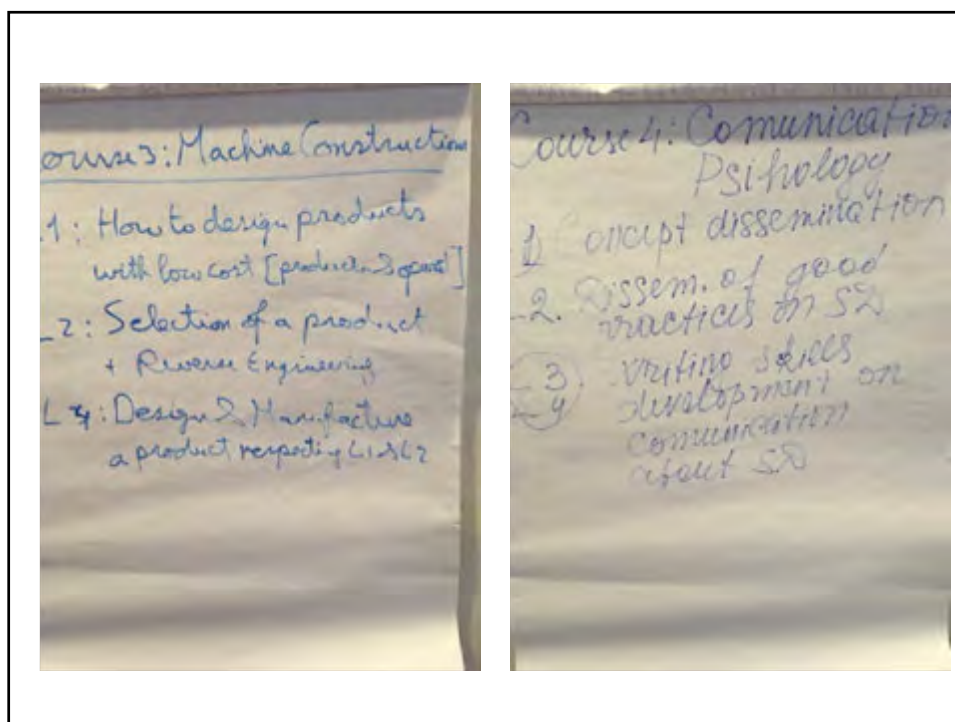 ourse 3: Machine Construction
.1: How to design products
with low cost [
L2: Selection of a product
+ Reverse Engineering
L 4: Design & Manufacture
a product respecting L1 & L2
Course 4: Comunication
Psihology
1 Concept dissemination
2. Dissem. of good
practices on SD
3 writing skills
4 development on
comunication
about SD